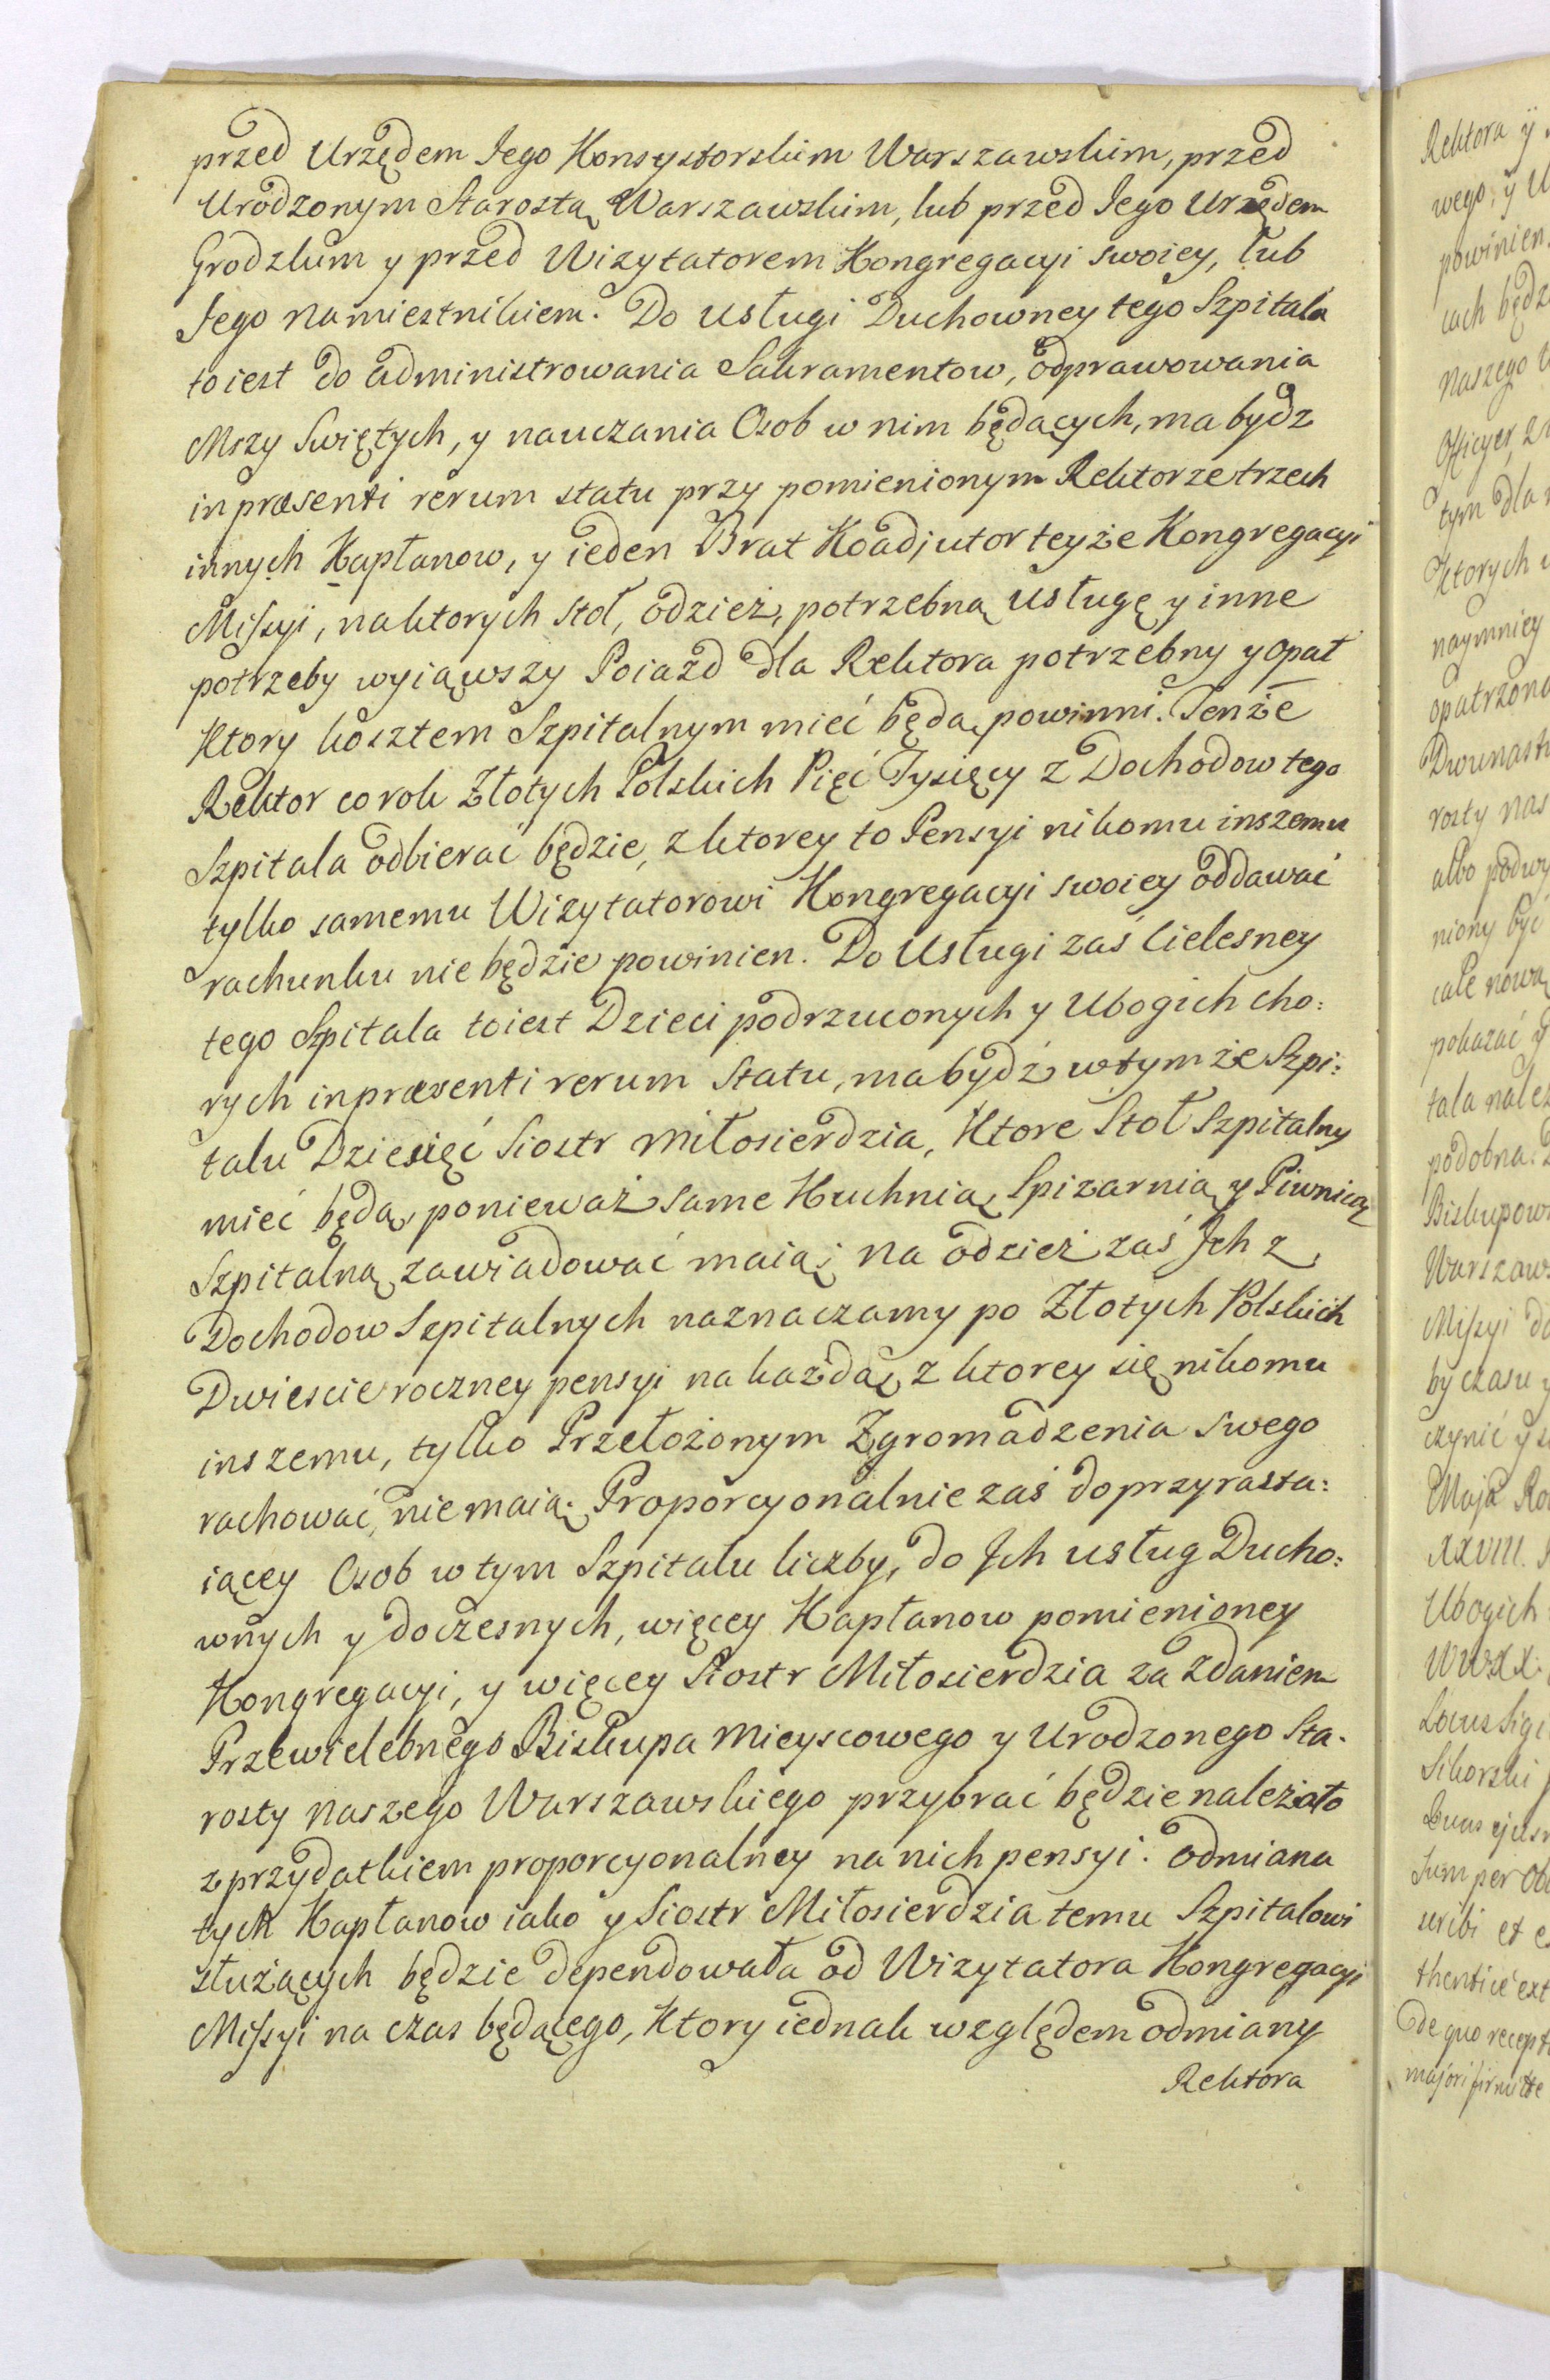 przed Urzędem Jego Konsystorskim Warszawskim, przed
Urodzonym Starostą Warszawskim, lub przed Jego Urzędem
Grodzkim y przed Wizytatorem Kongregacyi swoiey, lub
Jego Namiestnikiem. Do usługi Duchowney tego Szpitala
to iest do administrowania Sakramentow, odprawowania
Mszy Swiętych, y nauczania Osob w nim będących, ma bydz
in præsenti rerum statu przy pomienionym Rektorze trzech
innych Kapłanow, y ieden Brat Koadjutor teyże Kongregacyi
Missyi, na ktorych stoł, odzież, potrzebną usługę y inne
potrzeby wyiąwszy Poiazd dla Rektora potrzebny y opał
Ktory kosztem Szpitalnym mieć będą powinni. Tenże
Rektor co rok Złotych Polskich Pięć Tysięcy z Dochodow tego
Szpitala odbierać będzie, z ktorey to Pensyi nikomu inszemu
tylko samemu Wizytatorowi Kongregacyi swoiey oddawać
rachunku nie będzie powinien. Do Usługi zaś Cielesney
tego Szpitala to iest Dzieci podrzuconych y Ubogich cho:
rych in præsenti rerum statu, ma bydź w tymże Szpi:
talu Dziesięć Siostr miłosierdzia, Ktore Stoł Szpitalny
mieć będą, ponieważ same Kuchnią, Spizarnią y Piwnicą
Szpitalną zawiadować maią; na odzież zaś Jch z
Dochodow Szpitalnych naznaczamy po Złotych Polskich
Dwiescie roczney pensyi na każdą, z ktorey się nikomu
inszemu, tylko Przełożonym Zgromadzenia swego
rachować, nie maią. Proporcyonalnie zaś do przyrasta:
iącey Osob w tym Szpitalu liczby, do Jch usług Ducho:
wnych y doczesnych, więcey Kapłanow pomienioney
Kongregacyi, y więcey Siostr Miłosierdzia za zdaniem
Przewielebnego Biskupa mieyscowego y Urodzonego Sta.
rosty naszego Warszawskiego przybrać będzie należało
z przydatkiem proporcyonalney na nich pensyi. Odmiana
tych Kapłanow iako y Siostr Miłosierdzia temu Szpitalowi
służących będzie dependowała od Wizytatora Kongregacyi
Missyi na czas będącego, Ktory iednak względem odmiany
Rektora
Rektora y
wego, y
powinien
cach będz
naszego
tym dla
Ktorych
naymniey
opatrzona
Dwunast
rosty nas
albo podwy
niony być
całe nową
pokazać y
tala należ
podobna.
Biskupow
Warszaws
Missyi do
by czasu y
czynić y
Maja Ro
XXVIII.
Ubogich
Locus Sigi
Sikorski